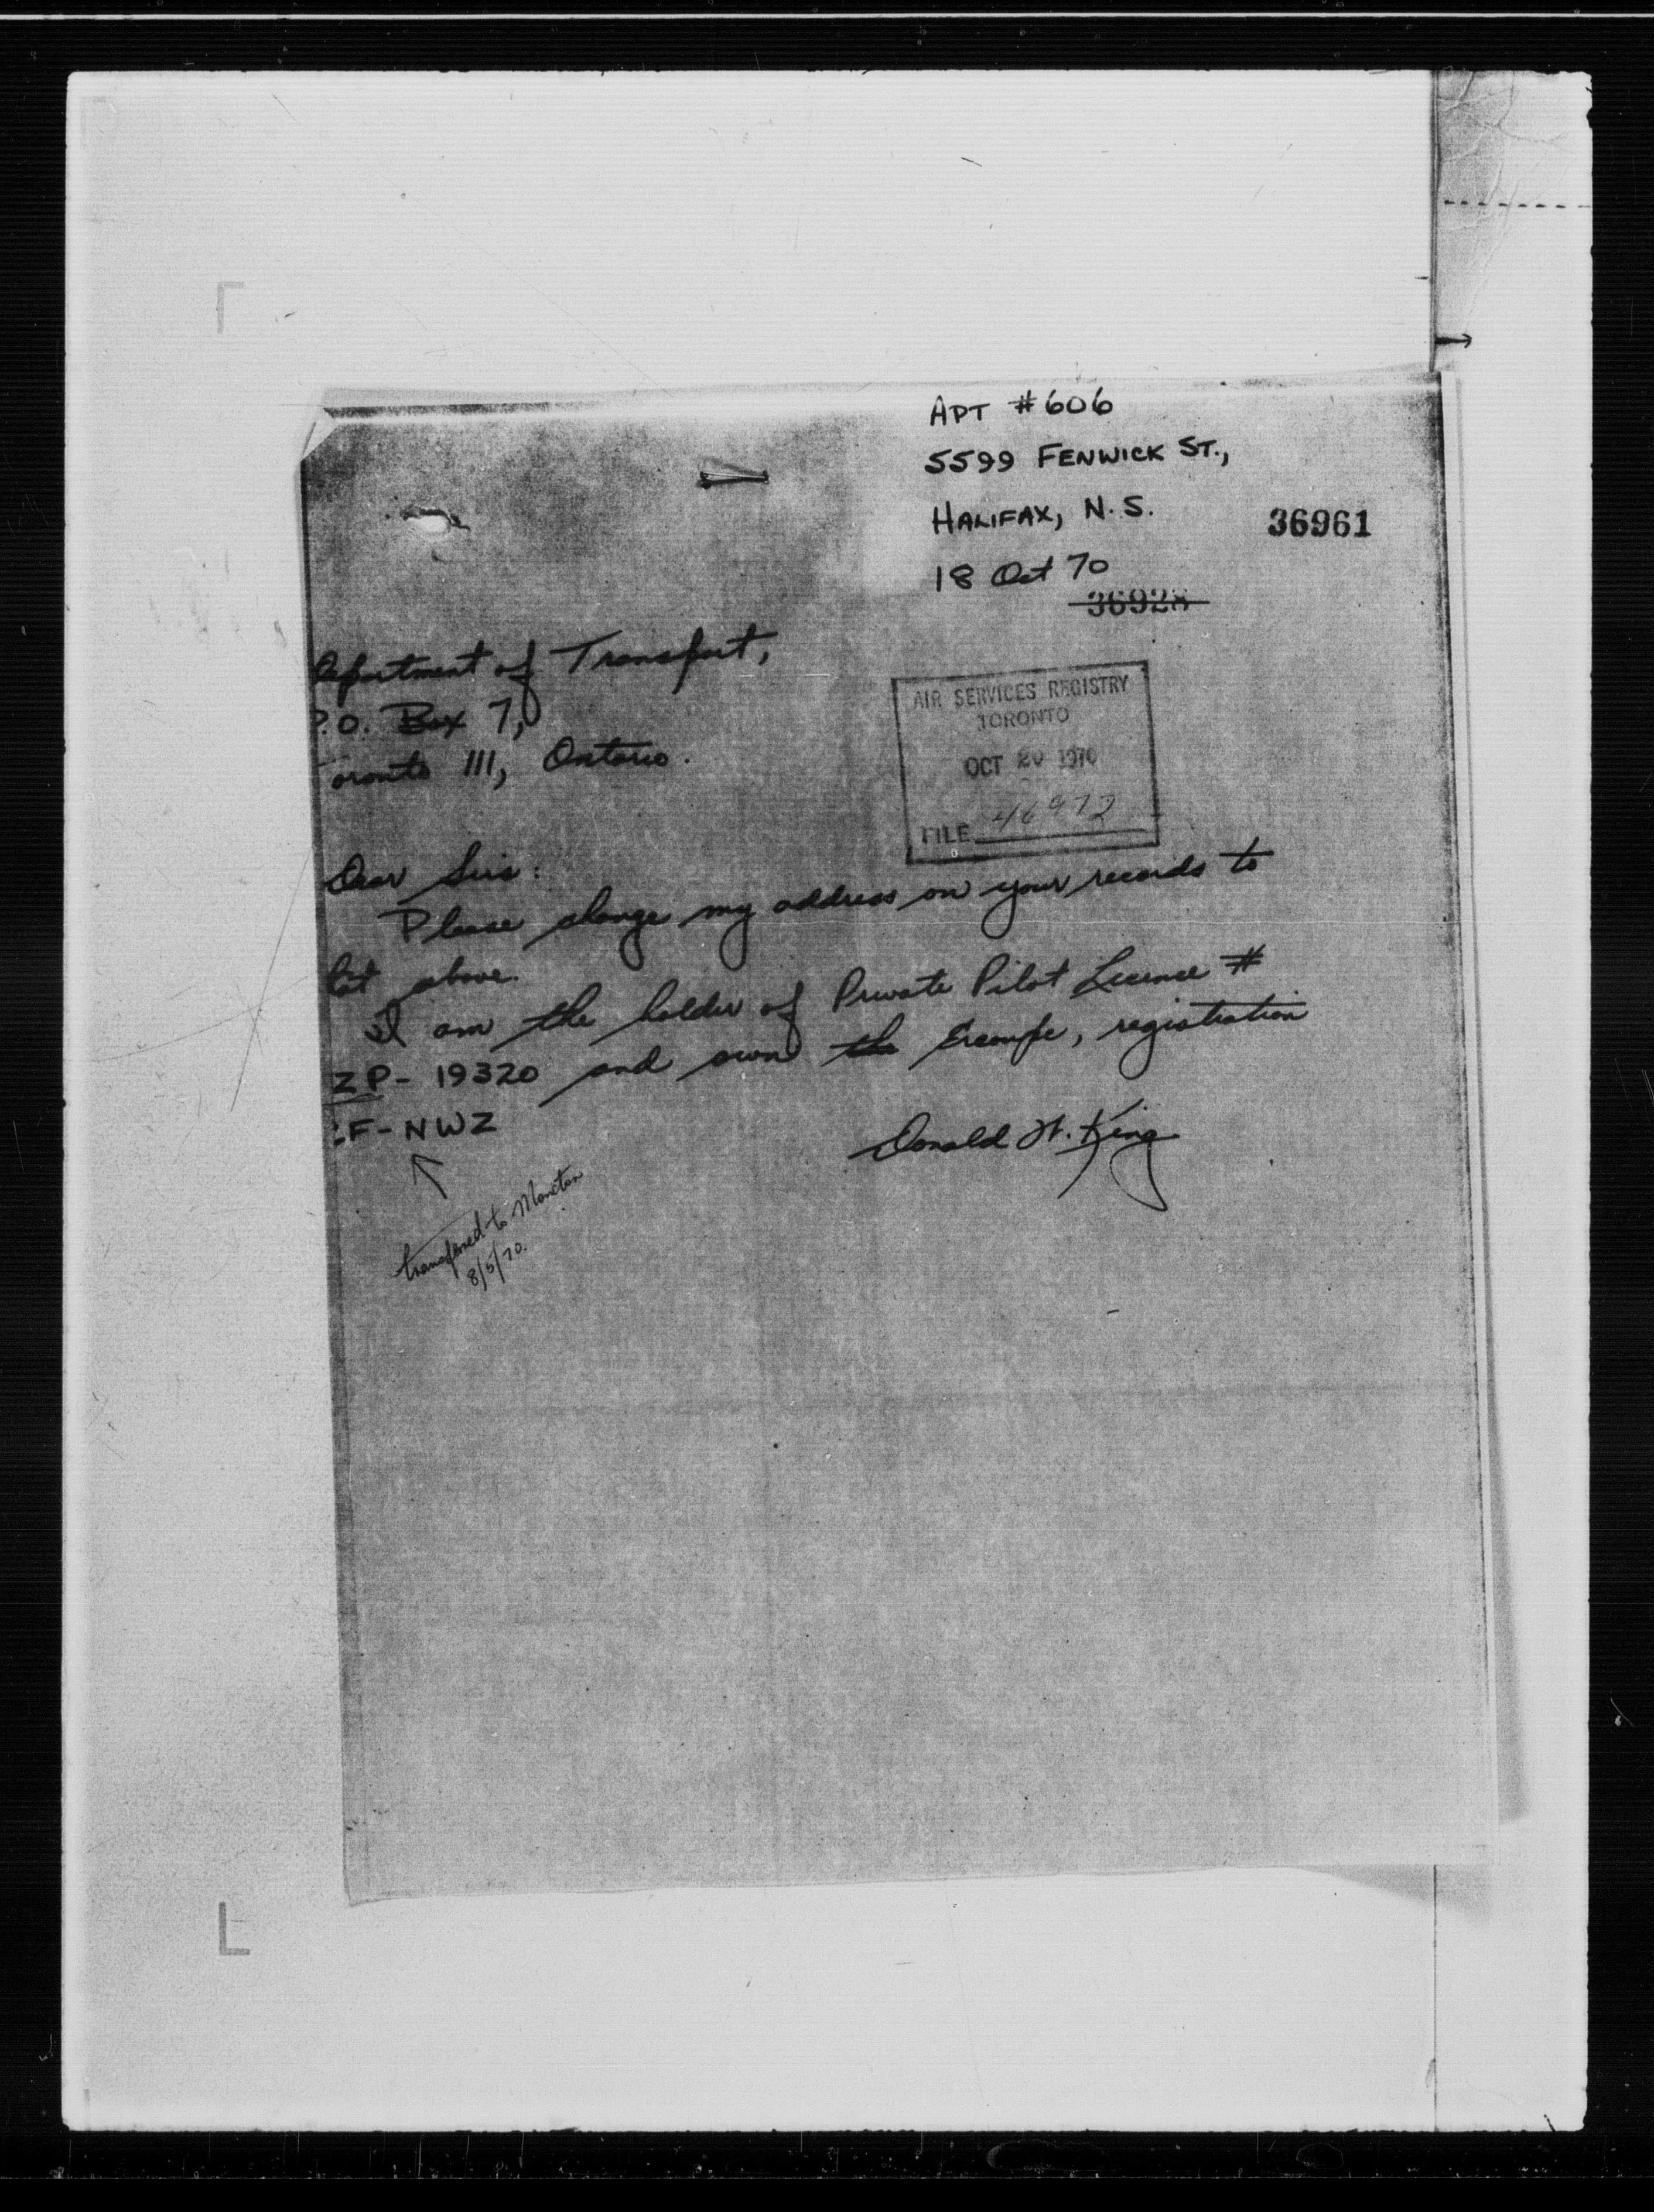 APT #606
5599 FENWICK ST.,
HALIFAX, N.S.
36961
18 Oct 70
36928
epartment of Transport,
P.O. Box 7,
oronto 111, Ontario.
AIR SERVICES REGISTRY
TORONTO
OCT 20 1970
FILE 46972
Dear Sirs:
Please change my address on your records to
tat above.
I am the holder of Private Pilot Licence #
ZP- 19320 and own the Ercoupe, registration
CF-NWZ
Donald W. King
transferred to Moncton
8/5/70.